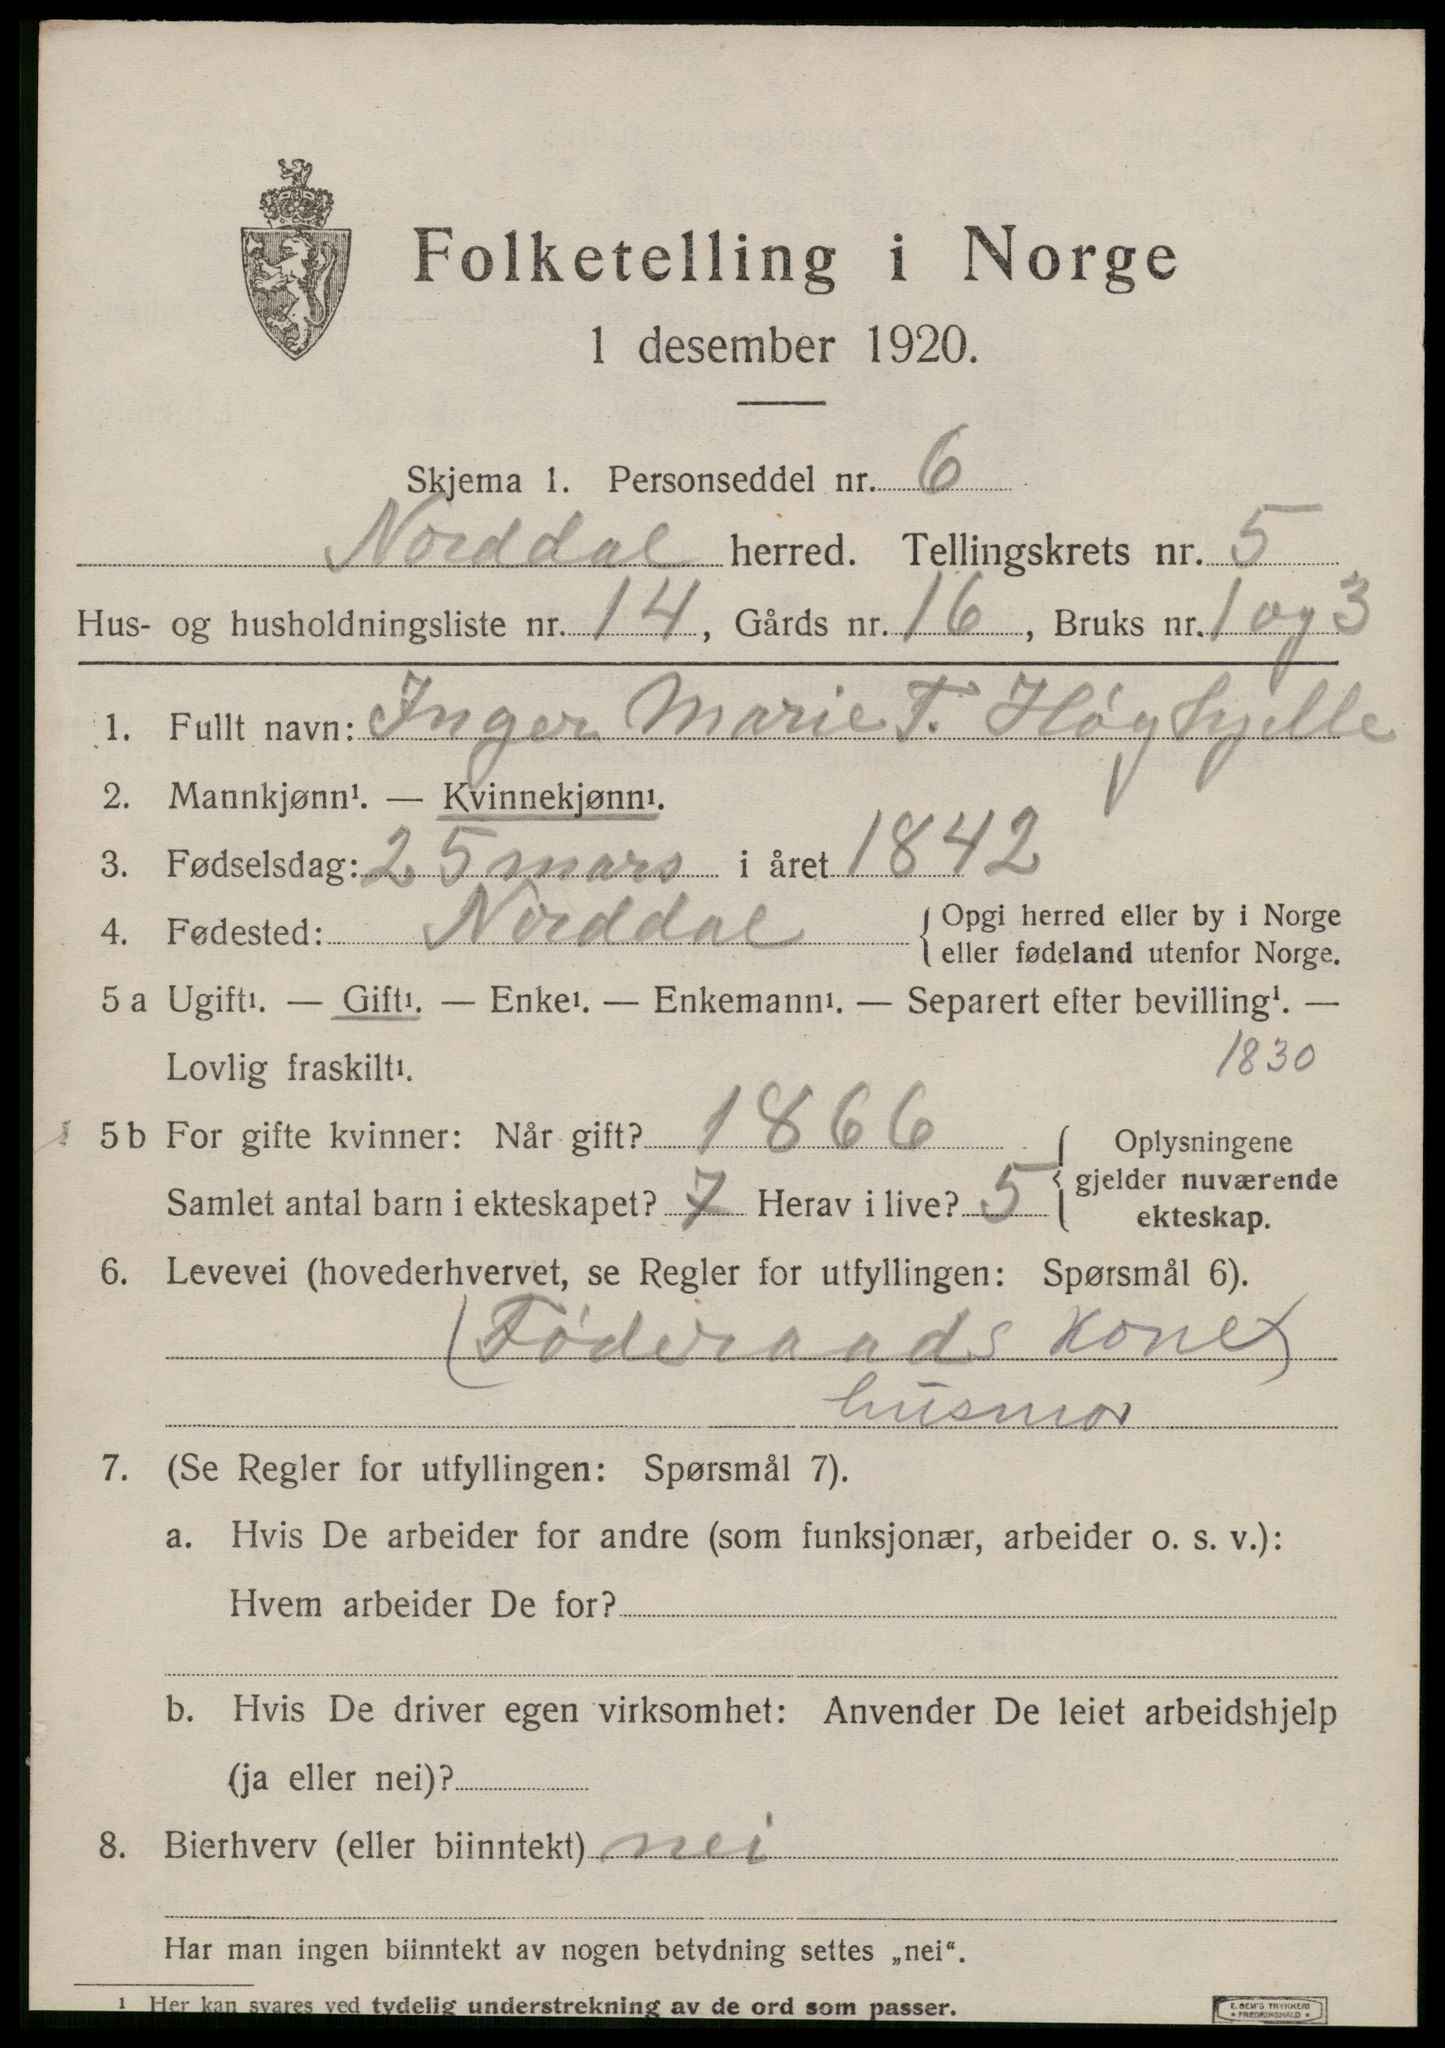 Folketelling i Norge
1 desember 1920.
Skjema 1. Personseddel nr. 6
Norddal herred. Tellingskrets nr. 5
Hus- og husholdningsliste nr. 14, Gårds nr. 16, Bruks nr. 1 og 3
1. Fullt navn: Inger Marie T. Høghjelle
2. Mannkjønn¹. — Kvinnekjønn¹.
3. Fødselsdag: 25 mars i året 1842
4. Fødested: Norddal { Opgi herred eller by i Norge
eller fødeland utenfor Norge.
5 a Ugift¹. — Gift¹. — Enke¹. — Enkemann¹. — Separert efter bevilling¹. —
Lovlig fraskilt¹. 1830
5 b For gifte kvinner: Når gift? 1866 { Oplysningene
gjelder nuværende
Samlet antal barn i ekteskapet? 7 Herav i live? 5 ekteskap.
6. Levevei (hovederhvervet, se Regler for utfyllingen: Spørsmål 6).
(Føderaads Kone)
husmor
7. (Se Regler for utfyllingen: Spørsmål 7).
a. Hvis De arbeider for andre (som funksjonær, arbeider o. s. v.):
Hvem arbeider De for?
b. Hvis De driver egen virksomhet: Anvender De leiet arbeidshjelp
(ja eller nei)?
8. Bierhverv (eller biinntekt) nei
Har man ingen biinntekt av nogen betydning settes „nei“.
¹ Her kan svares ved tydelig understrekning av de ord som passer.
E. SEM'S TRYKKERI
• FREDRIKSHALD •